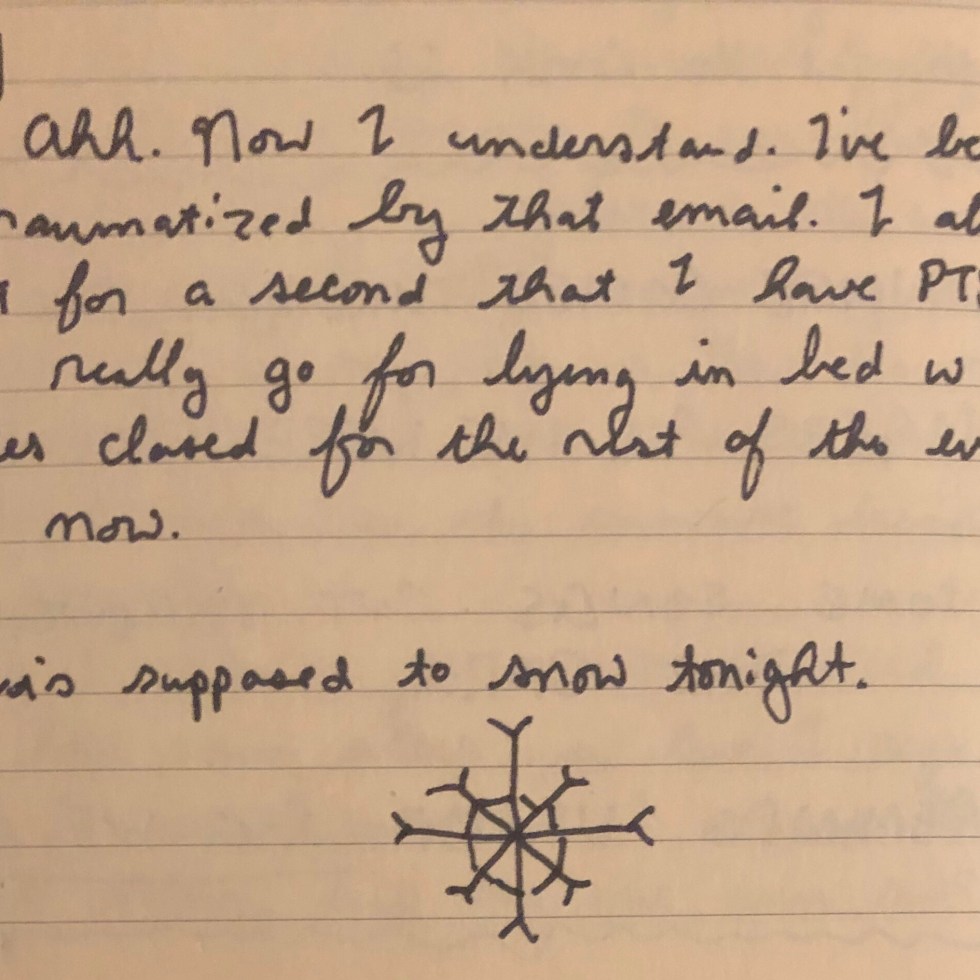 Ahh. Now I understand. I've be
raumatized by that email. I al
for a second that I have PTS
really go for lying in bed w
es closed for the rest of the ev
now.
is supposed to snow tonight.